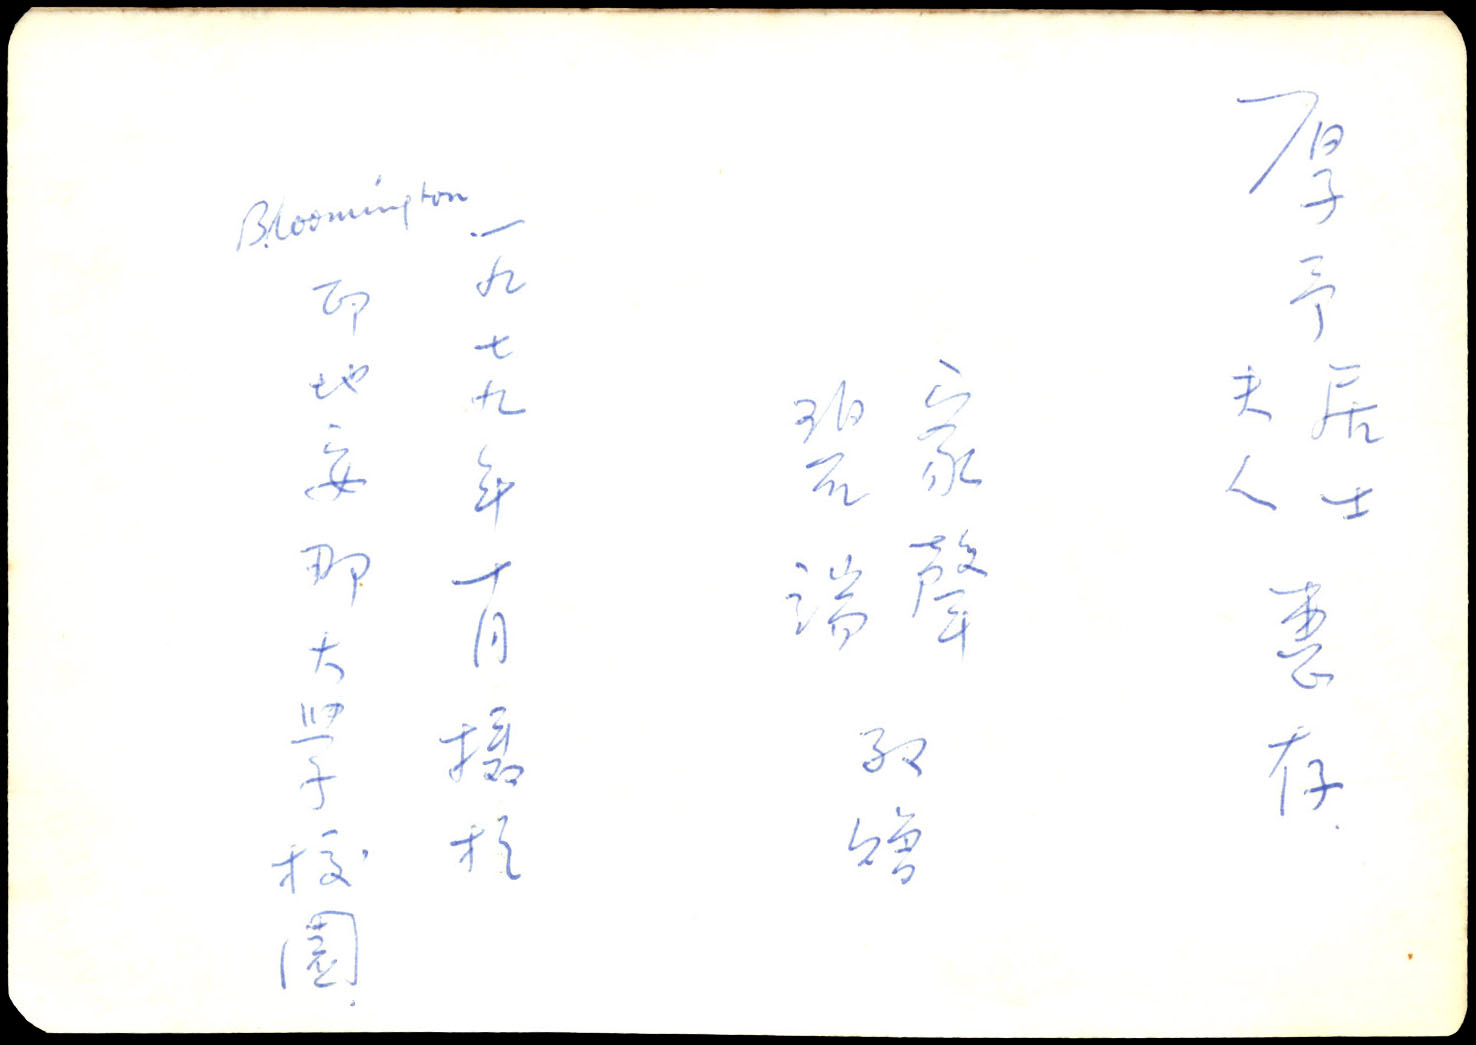 厚予居士
夫人
惠存
家聲
碧端
贈
一九七九年十月攝於
Bloomington
印地安那大學校園